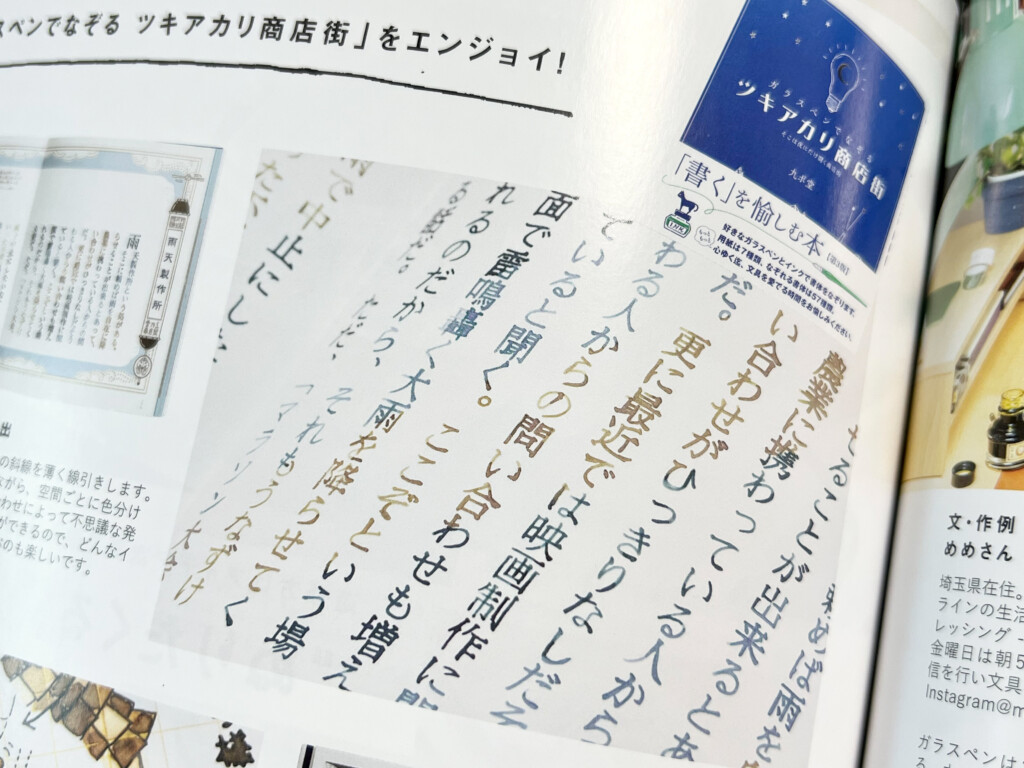 スペンでなぞる ツキアカリ商店街」をエンジョイ!
ガラスペンでなぞる
ツキアカリ商店街
そこは夜にだけ開く商店街
九ポ堂
「書く」を愉しむ本
【第2版】
好きなガラスペンとインクで書体をなぞります。
用紙は7種類、なぞれる書体は57種類。
心ゆく迄、文具を愛でる時間をお愉しみください。
せることが出来るとあ
農業に携わっている人から
い合わせがひっきりなしだそ
だ。 更に最近では映画制作に
わる人からの問い合わせも増え
ていると聞く。 ここぞという場
面で雷鳴轟く大雨を降らせてく
れるのだから、それもうなずけ
る話だ。
ただ、
雨で中止にした
雨天製作所
出
の斜線を薄く線引きします。
ながら、空間ごとに色分け
わせによって不思議な発
ができるので、どんなイ
のも楽しいです。
文・作例
めめさん
埼玉県在住。
ラインの生活
レッシング
金曜日は朝5
信を行い文具
Instagram@m
ガラスペンは